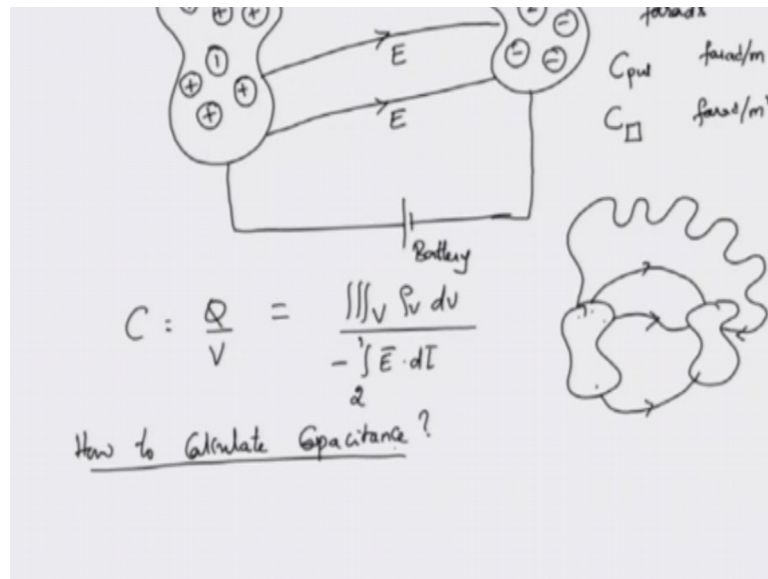 + +
1
+ +
+
E
E
- -
-
farads
Cpul farad/m
C□ farad/m²
Battery
C = Q/V = ∭v ρv dv / - ₂∫¹ Ē · dl̄
How to Calculate Capacitance?